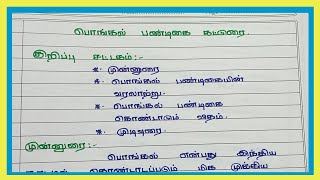 பொங்கல் பண்டிகை கட்டுரை.
குறிப்பு சட்டகம்:-
*. முன்னுரை
*. பொங்கல் பண்டிகையின்
வரலாற்று.
*. பொங்கல் பண்டிகை
கொண்டாடும் விதம்.
*. முடிவுரை.
முன்னுரை:-
பொங்கல் என்பது இந்திய
கொண்டாடப்படும் மிக முக்கிய